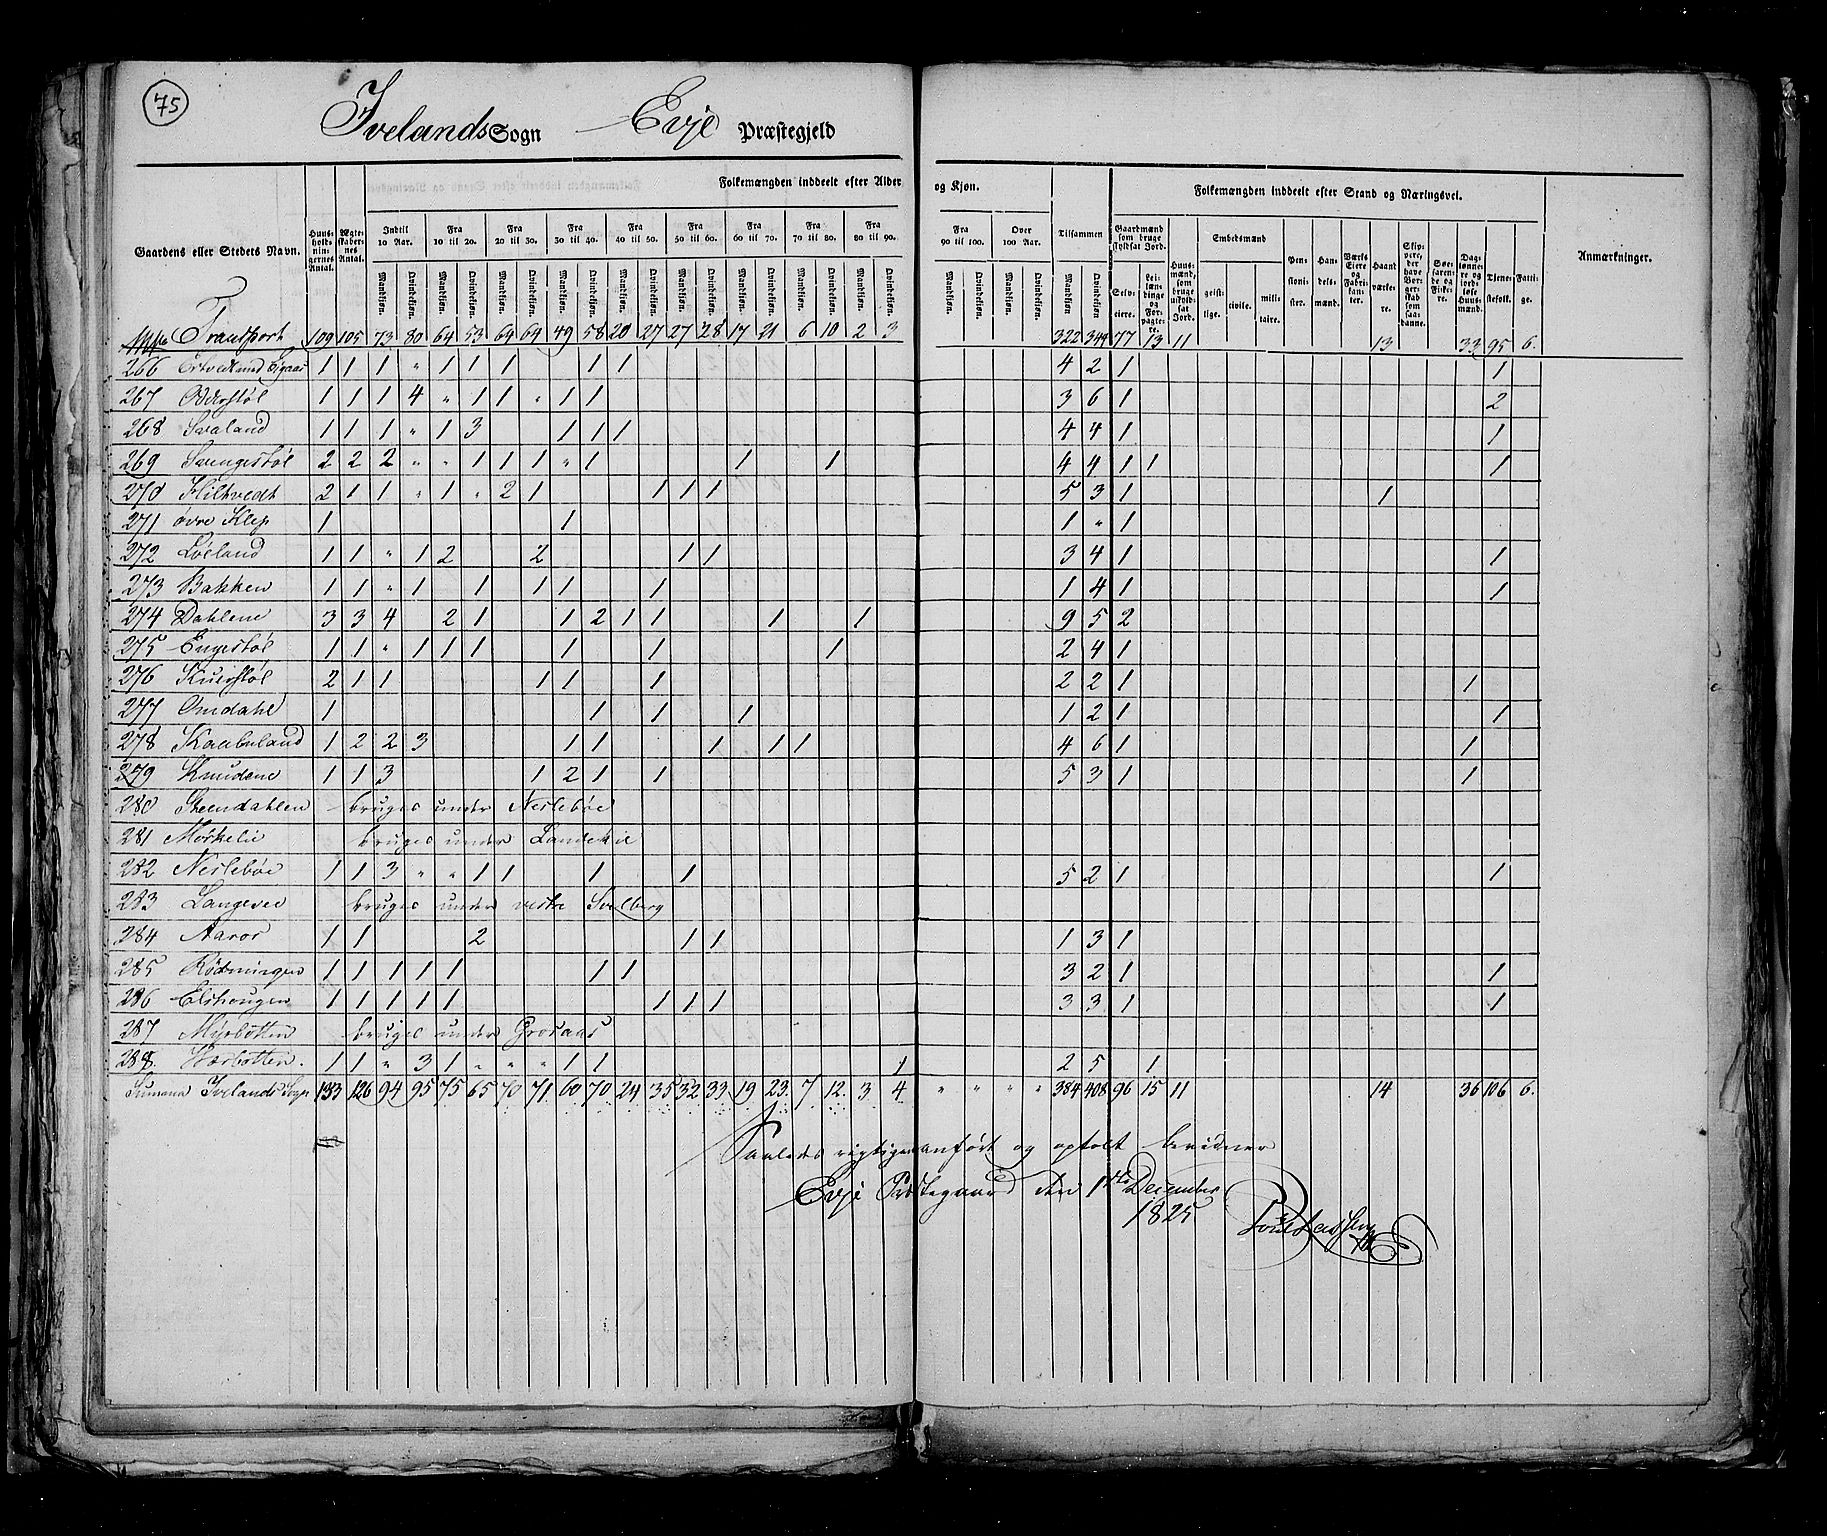 75
Ivelands Sogn Evje Præstegjeld
Folkemængden inddeelt efter Alder og Kjøn.
Folkemængden inddeelt efter Stand og Næringsvei.
Gaardens eller Stedets Navn. Huusholdningernes Antal. Ægteskabernes Antal. Indtil 10 Aar. Fra 10 til 20. Fra 20 til 30. Fra 30 til 40. Fra 40 til 50. Fra 50 til 60. Fra 60 til 70. Fra 70 til 80. Fra 80 til 90. Fra 90 til 100. Over 100 Aar. Tilsammen Gaardmænd som bruge skyldsat Jord. Huusmænd, som bruge uskyldsat Jord. Embedsmænd Pensionister. Handelsmænd. Værks Eiere og Fabrikanter. Haandværkere. Skippere, der have Borgerskab som saadanne. Søefarende og Fiskere. Dagslønnere og jordløse Huusmænd. Tjenestefolk. Fattige. Anmærkninger.
Mandkjøn. Qvindekjøn. Selveiere. Leilændinge og Forpagtere. geistlige. civile. militaire.
Transport 109 105 73 80 64 53 64 64 49 58 20 27 27 28 17 21 6 10 2 3 322 344 77 13 11 13 33 95 6.
266 1 1 1 " 1 1 1 1 1 4 2 1 1
267 Odderstøl 1 1 1 4 " 1 1 " 1 1 3 6 1 2
268 Svaland 1 1 1 " 1 3 1 1 1 4 4 1 1
269 Svengestøl 2 2 2 " " 1 1 1 " 1 1 1 4 4 1 1 1
270 Hiltvedt 2 1 1 " 1 " 2 1 1 1 1 5 3 1 1
271 øvre Klep 1 1 1 " 1
272 Løeland 1 1 " 1 2 2 1 1 3 4 1 1
273 Bakken 1 1 " 1 1 1 1 1 1 4 1 1
274 Dahlene 3 3 4 2 1 1 2 1 1 1 1 9 5 2
275 Engestøl 1 1 " 1 1 1 1 1 1 2 4 1
276 2 1 1 1 1 1 2 2 1 1
277 Omdahl 1 1 1 1 1 2 1 1
278 Kaabuland 1 2 2 3 1 1 1 1 1 4 6 1 1
279 Knudane 1 1 3 1 2 1 1 5 3 1 1
280 Steendahlen bruges under Neslebøe
281 Mørkelie bruges under
282 Neslebøe 1 1 3 " " 1 1 1 1 5 2 1 1
283 Langevei bruges under vestre
284 Aaros 1 1 2 1 1 1 3 1
285 Rødningen 1 1 1 1 1 1 1 3 2 1 1
286 Elshougen 1 1 1 1 1 1 1 1 3 3 1 1
287 Myrbotten bruges under Grosaas
288. 1 1 " 3 1 " " " 1 1 1 2 5 1
Summa Ivelands Sogn 133 126 94 95 75 65 70 71 60 70 24 35 32 33 19 23 7 12 3 4 " " " " 384 408 96 15 11 14 36 106 6.
Saaledes rigtigen anført og optalt bevidner
Evje Præstegaard den 1ste December
1825